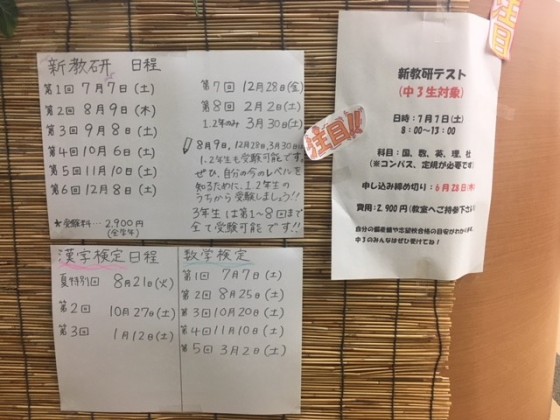 新教研 日程
第1回 7月7日(土)
第2回 8月9日(木)
第3回 9月8日(土)
第4回 10月6日(土)
第5回 11月10日(土)
第6回 12月8日(土)
*受験料…2,900円
(全学年)
第7回 12月28日(金)
第8回 2月2日(土)
1.2年のみ 3月30日(土)
8月9日、12月28日、3月30日は
1.2年生も受験可能です。
ぜひ、自分の今のレベルを
知るために、1.2年生の
うちから受験しましょう!!
3年生は第1〜8回まで
全て受験可能です!!
漢字検定日程
夏特別回 8月21日(火)
第2回 10月27日(土)
第3回 1月12日(土)
数学検定
第1回 7月7日(土)
第2回 8月25日(土)
第3回 10月20日(土)
第4回 11月10日(土)
第5回 3月2日(土)
注目!!
新教研テスト
(中3生対象)
日時:7月7日(土)
8:00〜13:00
科目:国、数、英、理、社
(※コンパス、定規が必要です)
申し込み締め切り:6月28日(木)
費用:2,900円(教室へご持参下さい)
自分の偏差値や志望校合格の目安がわかります。
中3のみんなはぜひ受けてね!